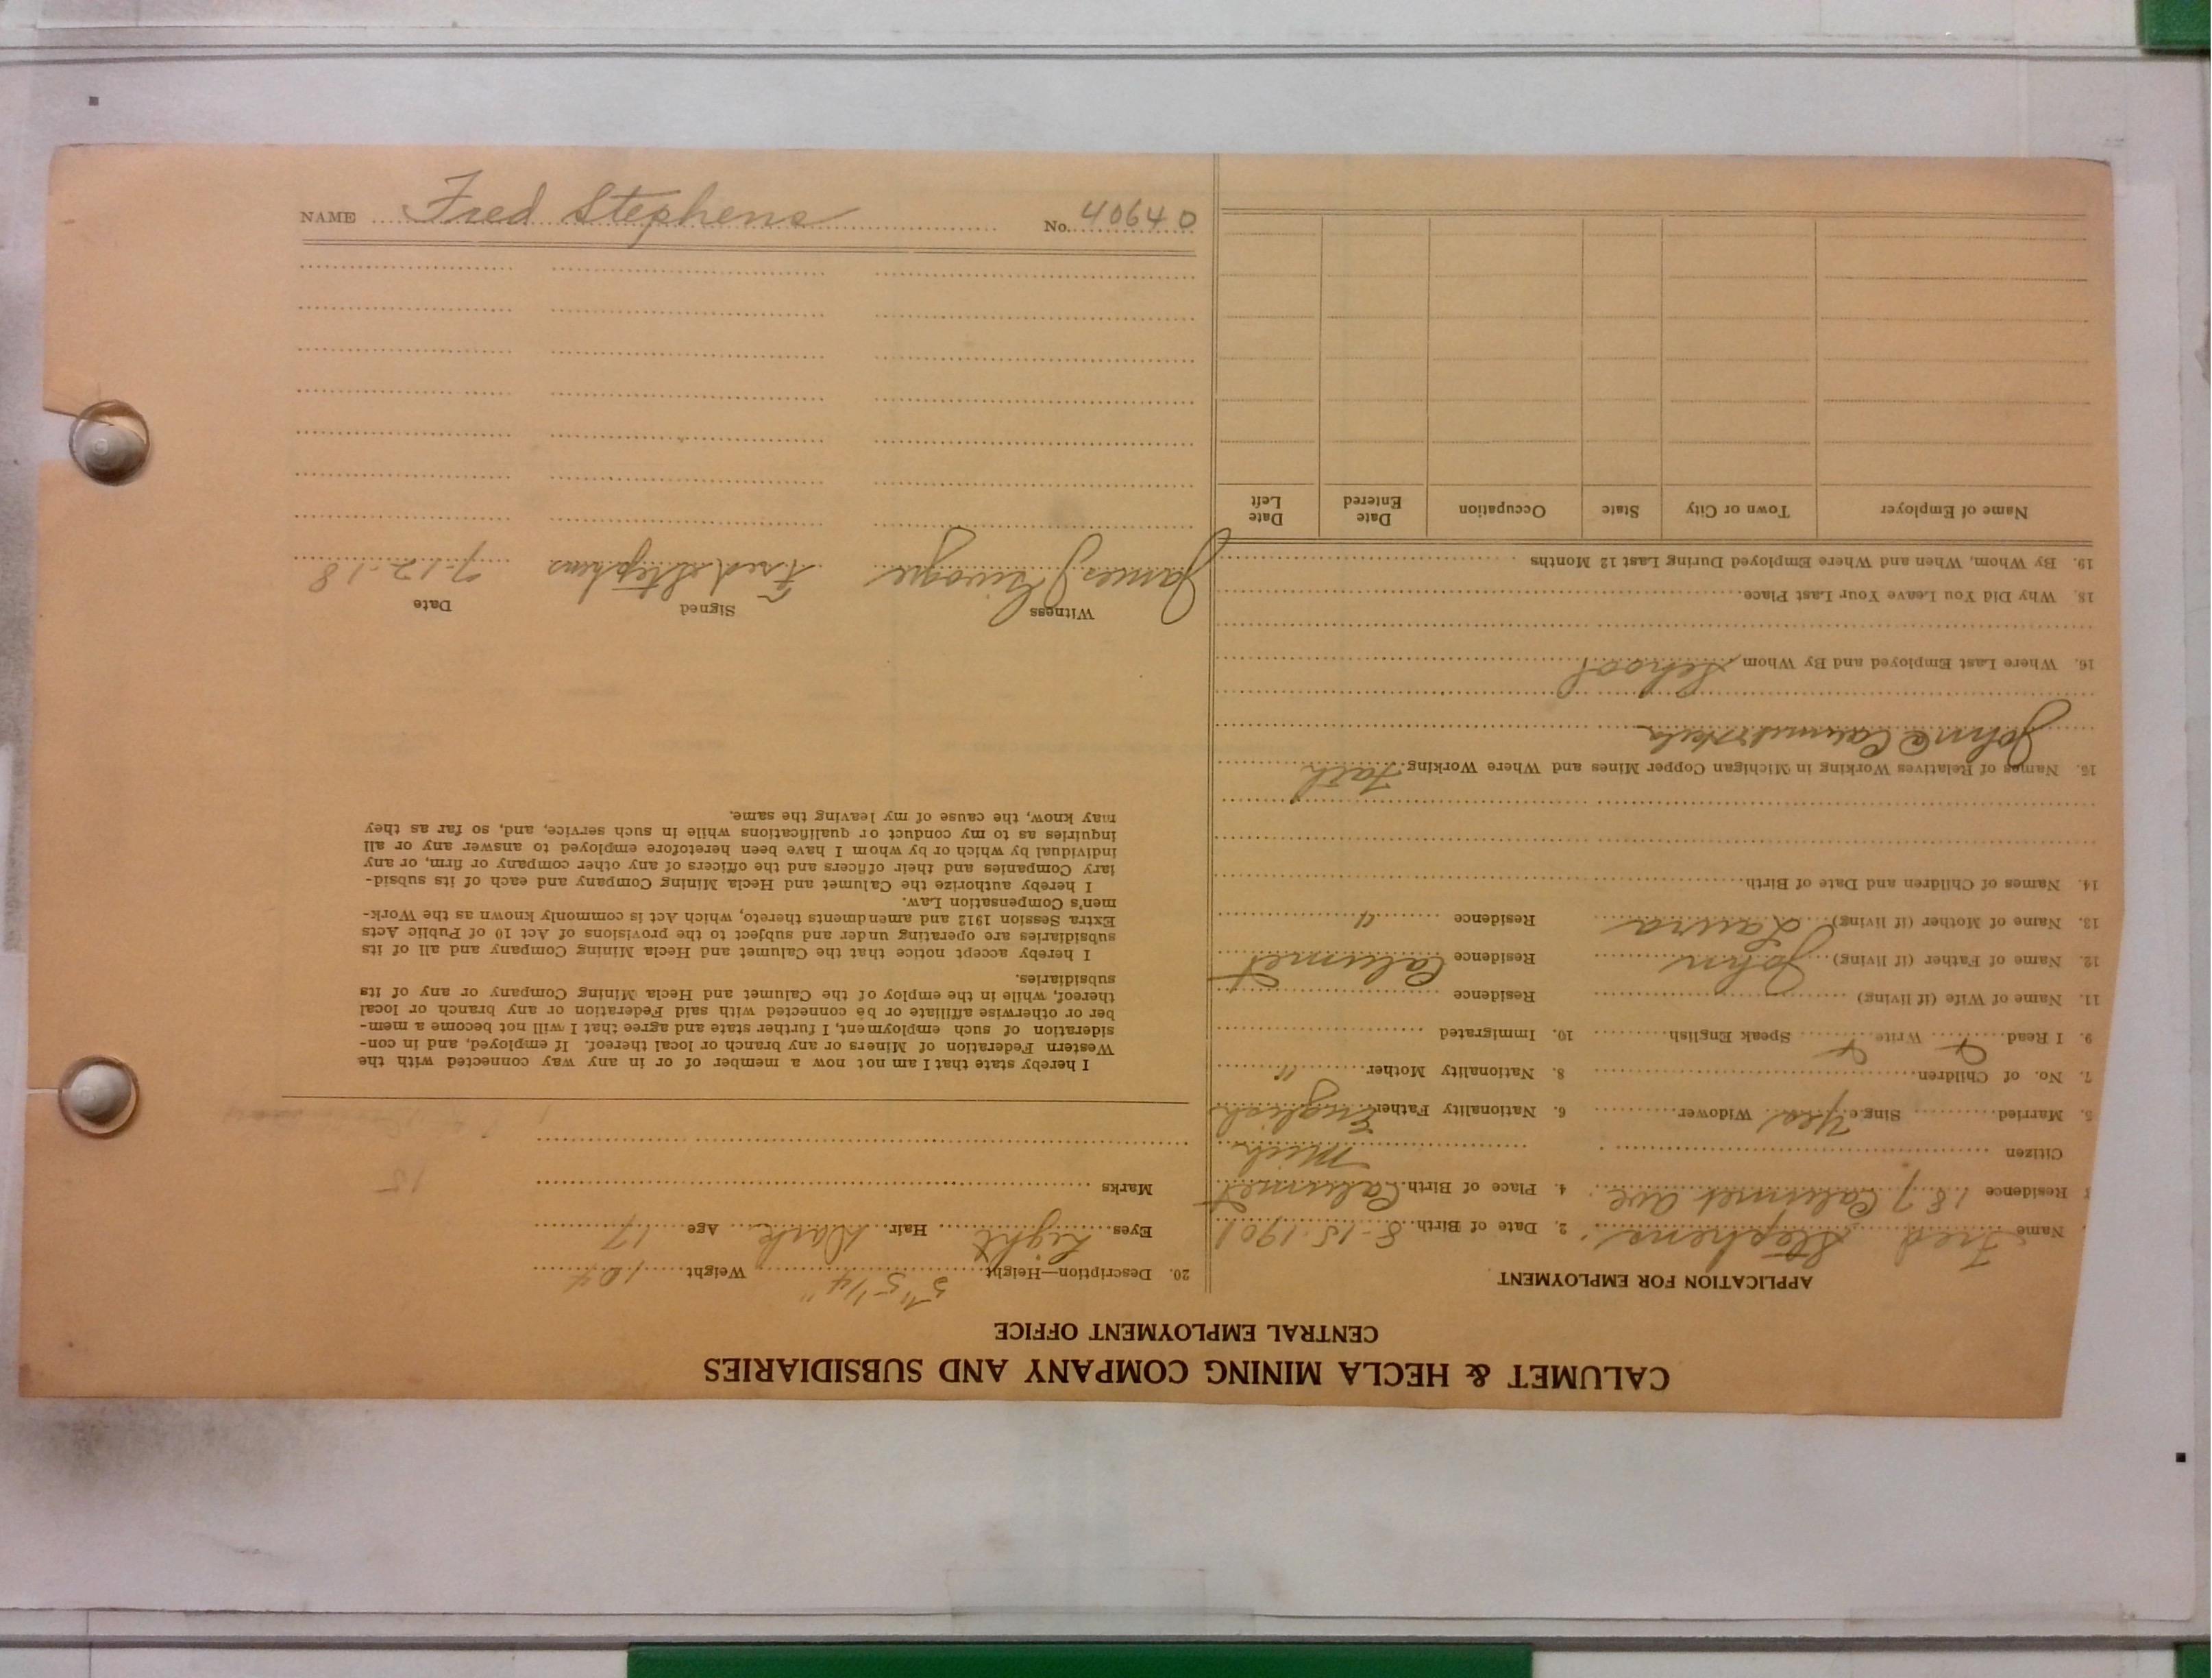 NAME Fred Stephens No. 40640
CALUMET & HECLA MINING COMPANY AND SUBSIDIARIES
CENTRAL EMPLOYMENT OFFICE
APPLICATION FOR EMPLOYMENT
Name Fred Stephens 2. Date of Birth 8-15-1901
Residence 187 Calumet Ave 4. Place of Birth Calumet
Citizen Mich
5. Married Single Yes Widower 6. Nationality Father English
7. No. of Children 8. Nationality Mother "
9. I Read Write Speak English 10. Immigrated
11. Name of Wife (if living) Residence
12. Name of Father (if living) John Residence Calumet
13. Name of Mother (if living) Laura Residence "
14. Names of Children and Date of Birth
15. Names of Relatives Working in Michigan Copper Mines and Where Working Fath
John
16. Where Last Employed and By Whom School
18. Why Did You Leave Your Last Place
19. By Whom, When and Where Employed During Last 12 Months
Name of Employer Town or City State Occupation Date Entered Date Left
20. Description—Height 5' 5 1/4" Weight 104
Eyes Light Hair Dark Age 17
Marks
15
I hereby state that I am not now a member of or in any way connected with the
Western Federation of Miners or any branch or local thereof. If employed, and in con-
sideration of such employment, I further state and agree that I will not become a mem-
ber or otherwise affiliate or be connected with said Federation or any branch or local
thereof, while in the employ of the Calumet and Hecla Mining Company or any of its
subsidiaries.
I hereby accept notice that the Calumet and Hecla Mining Company and all of its
subsidiaries are operating under and subject to the provisions of Act 10 of Public Acts
Extra Session 1912 and amendments thereto, which Act is commonly known as the Work-
men's Compensation Law.
I hereby authorize the Calumet and Hecla Mining Company and each of its subsid-
iary Companies and their officers and the officers of any other company or firm, or any
individual by which or by whom I have been heretofore employed to answer any or all
inquiries as to my conduct or qualifications while in such service, and, so far as they
may know, the cause of my leaving the same.
Witness Signed Date
James Fred Stephens 7-12-18